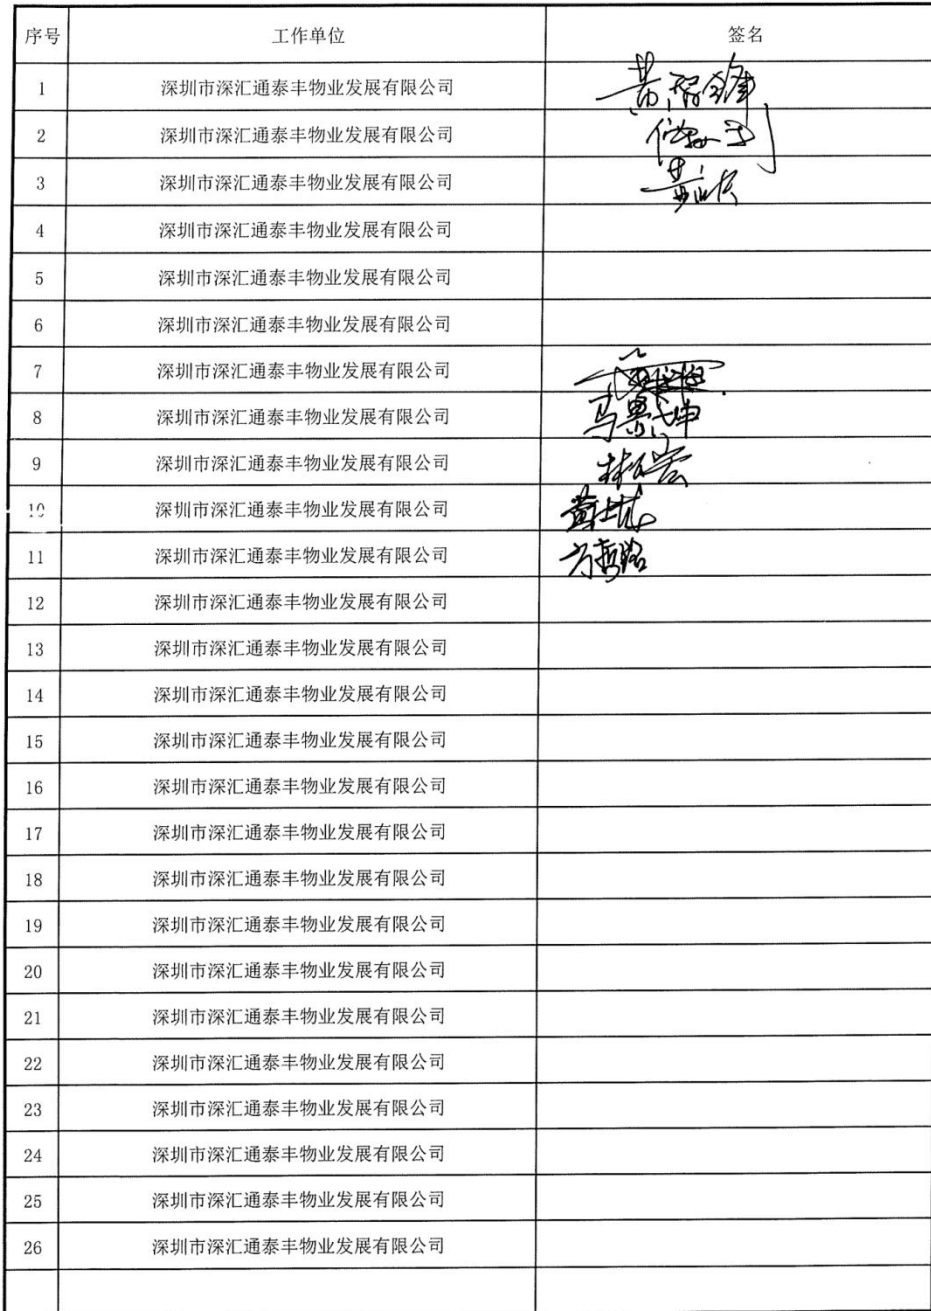 序号 工作单位 签名
1 深圳市深汇通泰丰物业发展有限公司 黄
2 深圳市深汇通泰丰物业发展有限公司
3 深圳市深汇通泰丰物业发展有限公司 黄
4 深圳市深汇通泰丰物业发展有限公司
5 深圳市深汇通泰丰物业发展有限公司
6 深圳市深汇通泰丰物业发展有限公司
7 深圳市深汇通泰丰物业发展有限公司
8 深圳市深汇通泰丰物业发展有限公司 马
9 深圳市深汇通泰丰物业发展有限公司 林
10 深圳市深汇通泰丰物业发展有限公司 黄
11 深圳市深汇通泰丰物业发展有限公司 方哲
12 深圳市深汇通泰丰物业发展有限公司
13 深圳市深汇通泰丰物业发展有限公司
14 深圳市深汇通泰丰物业发展有限公司
15 深圳市深汇通泰丰物业发展有限公司
16 深圳市深汇通泰丰物业发展有限公司
17 深圳市深汇通泰丰物业发展有限公司
18 深圳市深汇通泰丰物业发展有限公司
19 深圳市深汇通泰丰物业发展有限公司
20 深圳市深汇通泰丰物业发展有限公司
21 深圳市深汇通泰丰物业发展有限公司
22 深圳市深汇通泰丰物业发展有限公司
23 深圳市深汇通泰丰物业发展有限公司
24 深圳市深汇通泰丰物业发展有限公司
25 深圳市深汇通泰丰物业发展有限公司
26 深圳市深汇通泰丰物业发展有限公司